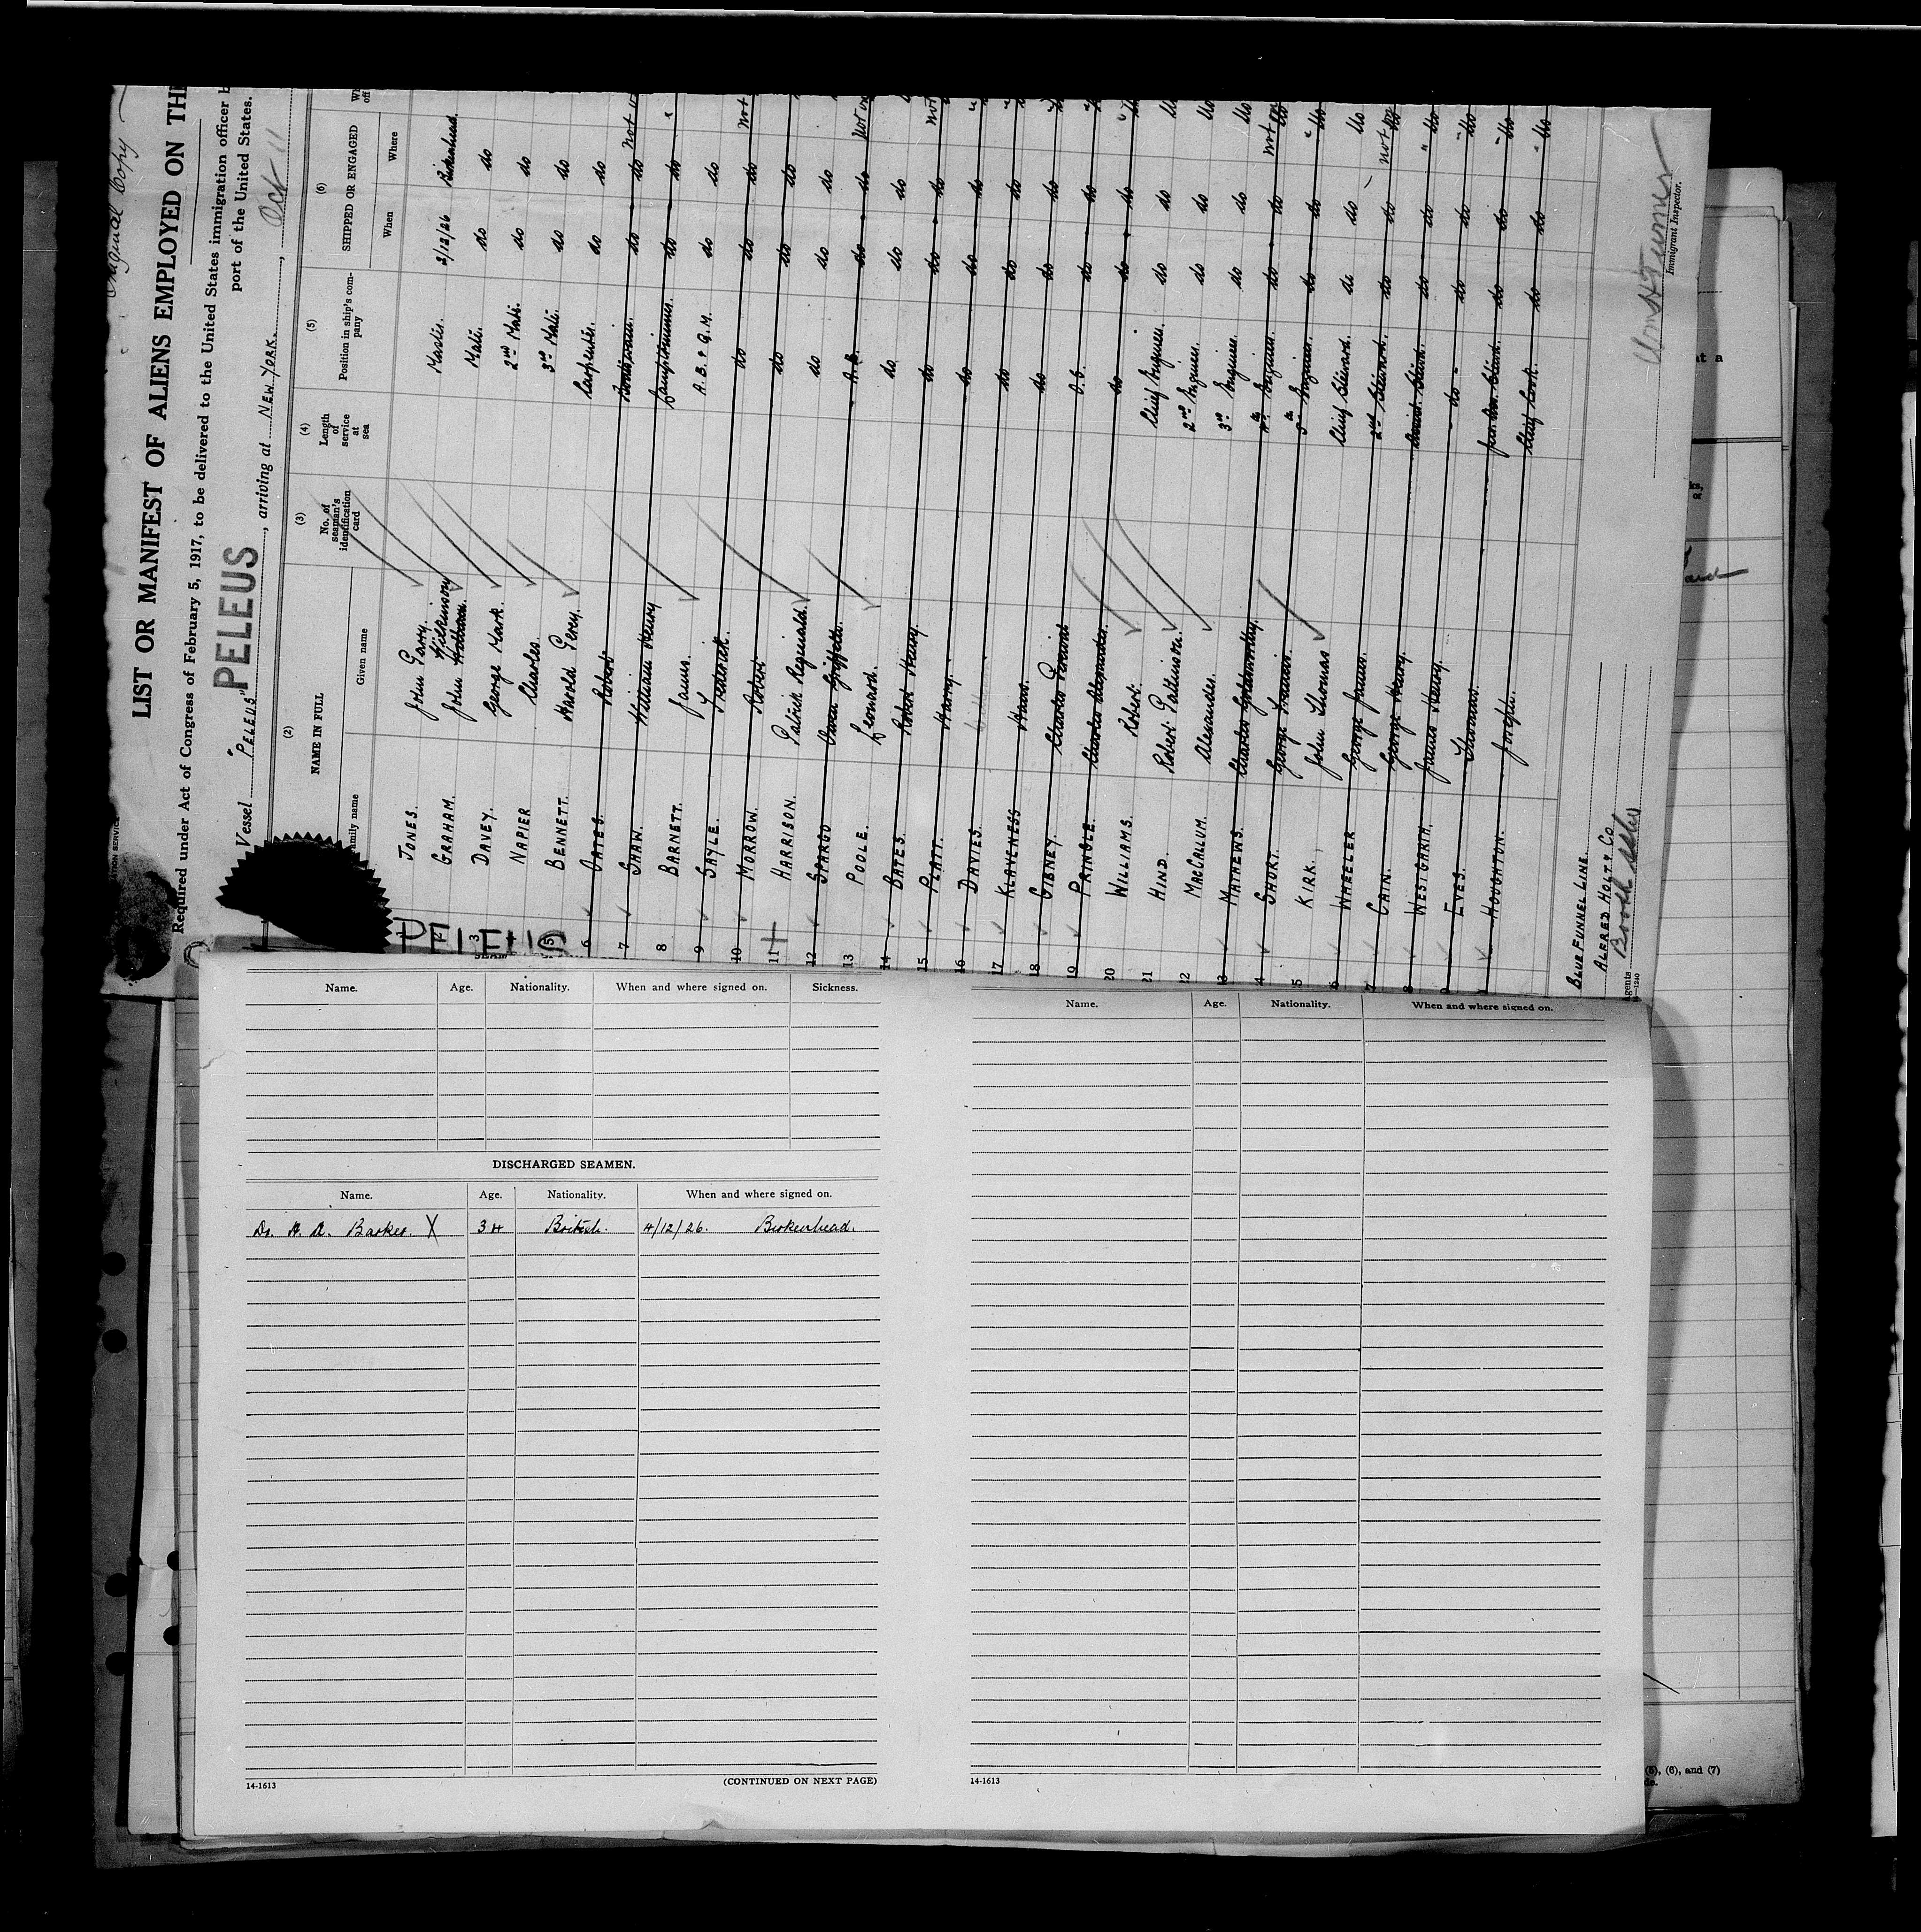 Original Copy
LIST OR MANIFEST OF ALIENS EMPLOYED ON THE
Required under Act of Congress of February 5, 1917, to be delivered to the United States immigration officer b
port of the United States.
Vessel "PELEUS" PELEUS, arriving at NEW YORK., Oct 11
(2) (3) (4) (5) (6)
NAME IN FULL No. of seaman's identification card Length of service at sea Position in ship's company SHIPPED OR ENGAGED
amily name Given name When Where
1 JONES. John Parry. Master. 2/12/26 Birkenhead.
2 GRAHAM. John Wilkinson Mate. do do
3 DAVEY. George Mark. 2nd Mate. do do
4 NAPIER Charles. 3rd Mate. do do
5 BENNETT. Harold Percy. Carpenter. do do
6 OATES. Robert Boatswain. do do not
7 SHAW. William Henry Lamptrimmer. do do "
8 BARNETT. James. A.B. & Q.M. do do
9 SAYLE. Frederick. do do do not
10 MORROW. Robert do do do
11 HARRISON. Patrick Reginald. do do do
12 SPARGO Owen Griffith. A.B. do do not
13 POOLE. Leonard. do do do
14 BATES. Robert Henry. do do do not
15 PLATT. Harry. do do do "
16 DAVIES. do do do "
17 KLAVENESS Hans. do do do "
18 GIBNEY. Charles Percival O.S. do do "
19 PRINGLE. Charles Alexander. do do do "
20 WILLIAMS. Robert. Chief Engineer. do do do
21 HIND. Robert Pattinson. 2nd Engineer. do do do
22 MACCALLUM. Alexander. 3rd Engineer. do do do
3 MATHEWS. Charles Goldsworthy. 4th Engineer. do do do not
4 SHORT. George Francis. 5th Engineer. do do do "
5 KIRK. John Thomas Chief Steward. do do do
6 WHEELER George James. 2nd Steward. do do do not
7 CAIN. George Henry. Assist. Stewd. do do do "
8 WESTGARTH. James Henry. do do do do "
9 EVES. Thomas. Stewd. do do do "
HOUGHTON. Joseph. Chief Cook. do do do "
BLUE FUNNEL LINE.
ALFRED HOLT & Co.
Agents
14—1240
Immigrant Inspector.
PELEUS
Name. Age. Nationality. When and where signed on. Sickness.
DISCHARGED SEAMEN.
Name. Age. Nationality. When and where signed on.
Dr. A. A. Barker. X 34 British. 4/12/26. Birkenhead.
14-1613 (CONTINUED ON NEXT PAGE)
Name. Age. Nationality. When and where signed on.
14-1613
at a
ks,
or
(5), (6), and (7)